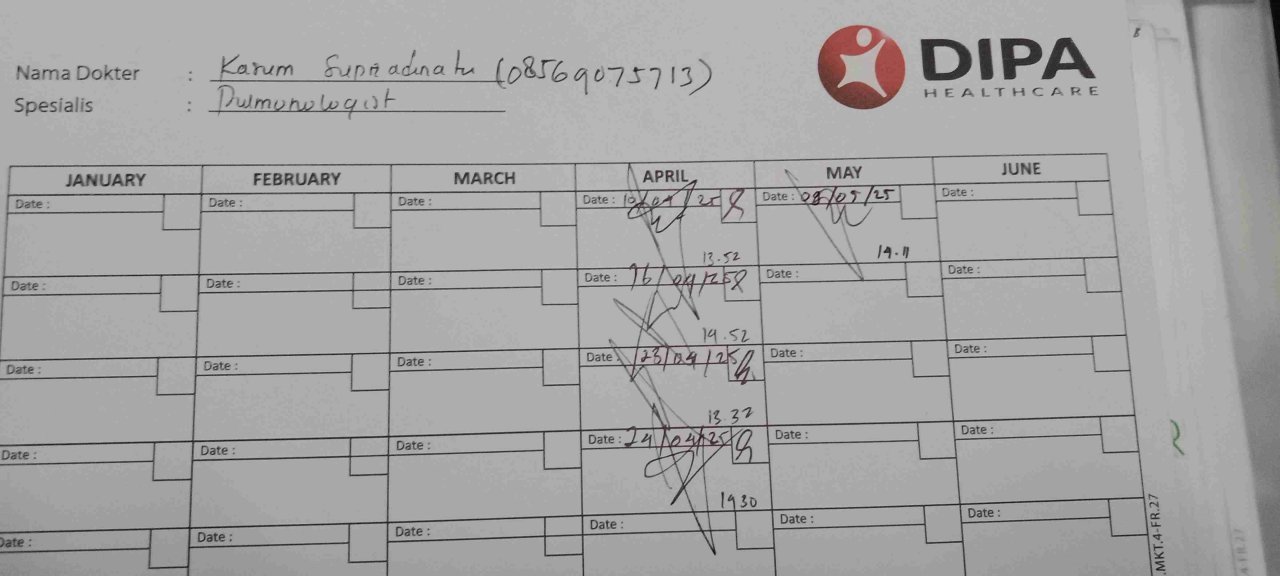 DIPA
HEALTHCARE
Nama Dokter : Karum Supriadinata (085690757 13)
Spesialis : Pulmonologist
JANUARY FEBRUARY MARCH APRIL MAY JUNE
Date : Date : Date : Date : 10/04/25 Date : 08/05/25 Date :
13.52 14.11
Date : Date : Date : Date : 16/04/25 Date : Date :
14.52
Date : Date : Date : Date : 23/04/25 Date : Date :
13.32
Date : Date : Date : Date : 24/04/25 Date : Date :
1430
Date : Date : Date : Date : Date : Date :
.MKT.4-FR.27